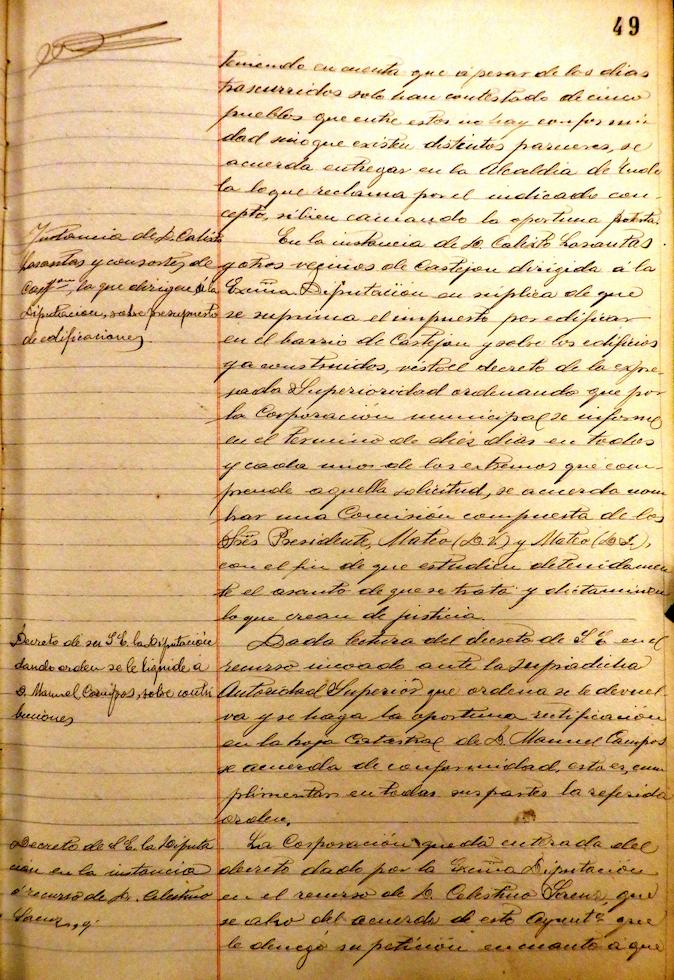 49
teniendo en cuenta que apesar de los dias
trascurridos solo han contestado de cinco
pueblos que entre estos no hay conformi-
dad sino que existen distintos pareceres, se
acuerda entregar en la Alcaldia de Tude
la lo que reclama por el indicado con-
cepto, si bien causando la oportuna protesta.
Instancia de D. Calisto
Lasantas y consortes, de
Castn, la que dirigen a la
Diputacion, sobre presupuesto
de edificaciones
En la instancia de D. Calisto Lasantas
y otros vecinos de Castejon dirigida á la
Excma. Diputación en súplica de que
se suprima el impuesto por edificar
en el barrio de Castejon y sobre los edificios
ya construidos, visto el decreto de la expre-
sada Superioridad ordenando que por
la Corporación municipal se informe
en el termino de diez dias en todos
y cada unos de los extremos que com-
prende aquella solicitud, se acuerda nom
brar una Comisión compuesta de los
Sres Presidente, Mateo (D. V.) y Mateo (D. L.),
con el fin de que estudien detenidamen
te el asunto de que se trata y dictaminen
lo que crean de justicia.
Decreto de su S. E. la Diputación
dando orden se le liquide a
D. Manuel Campos, sobre contri
buciones
Dada lectura del decreto de S. E. en el
recurso incoado ante la supradicha
Autoridad Superior que ordena se le devuel
va y se haga la oportuna rectificación
en la hoja Catastral de D. Manuel Campos
se acuerda de conformidad, esto es, cum
plimentar en todas sus partes la referida
orden.
Decreto de S. E. la Diputa
ción en la instancia
ó recurso de D. Celestino
Saenz, q.
La Corporación queda enterada del
decreto dado por la Excma Diputación
en el recurso de D. Celestino Saenz, que
se alzo del acuerdo de este Ayuntº que
le denegó su petición en cuanto á que